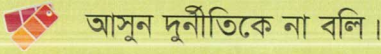 আসুন দুর্নীতিকে না বলি।